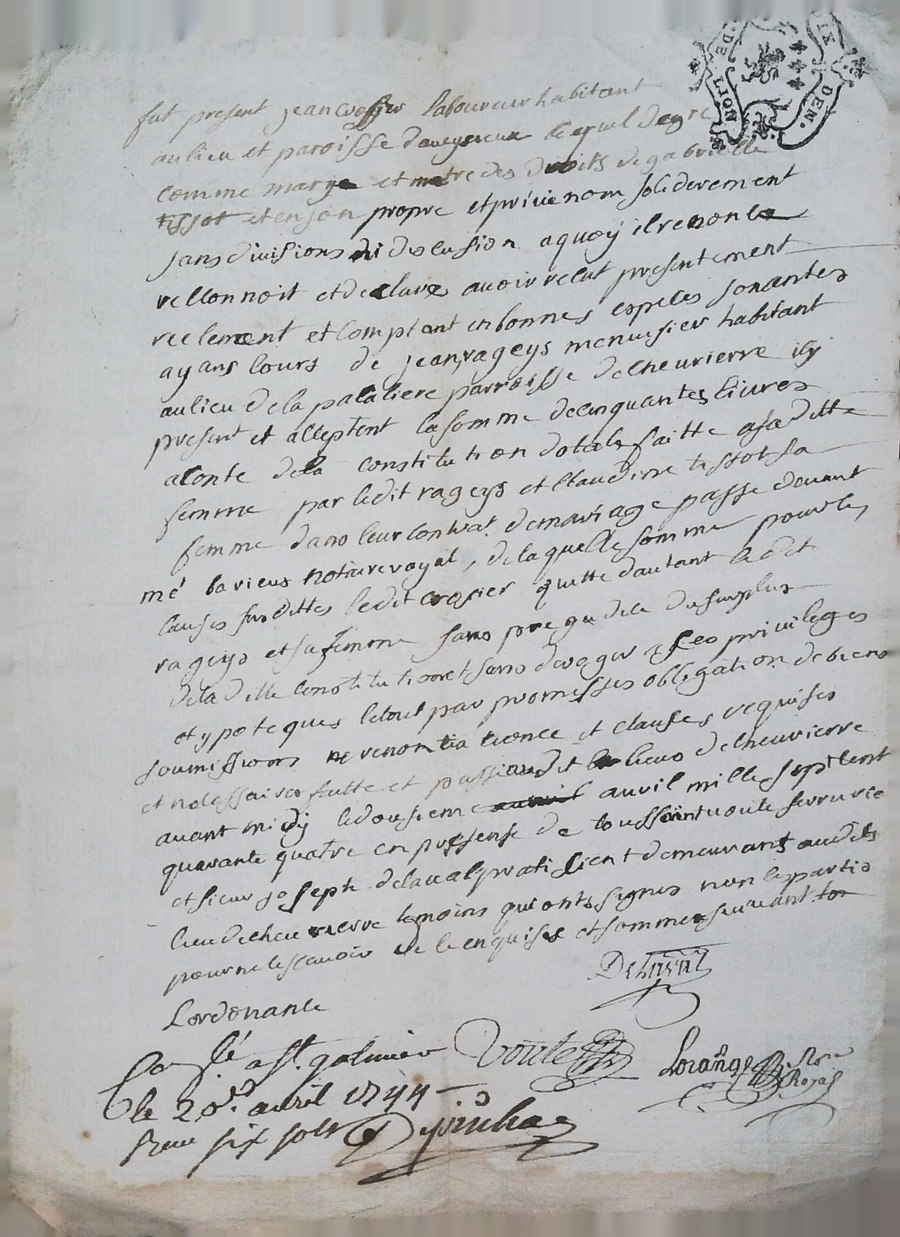 DE NOTR
IX DEN.
fut present jean crosier laboureur habitant
au lieu et paroisse daveyzieux lequel de gre
comme marye et metre des droits de gabrielle
tissot et en son propre et privé nom soliderement
sans divisions ni discusion a quoy il renonce
reconnoit et declare avoir recut presentement
reelement et comptant en bonnes especes sonantes
ayans cours de jean rageys menuisier habitant
au lieu de la palaliere parroisse de cheurierre icy
present et acceptent la somme de cinquantes livres
a conte de la constitution dotale faitte a sa ditte
femme par ledit rageys et claudine tissot sa
femme dans leur contrat de mariage passe devant
me barieux notaire royal, de laquelle somme pour les
causes susdittes ledit crosier quitte dautant ledit
rageys et sa femme sans pregudice du surplus
de la ditte constitution et sans deroger a ses privileges
et ypoteques le tout par promesses obligation de biens
soumissions renontia tionce et clauses requises
et necessaires faitte et passé audit lieu de cheurierre
avant midy le dousieme avril mille sept cent
quarante quatre en presense de toussaint voute serrurie
et sieur joseph delaval pratissient demeurant audit
lieu de cheurierre temoins qui ont signes non les partis
pour ne le scavoir de ce enquises et sommes suivant
Lordonance
Delaval
Voute
Lorange No.re Royal
Conlé a St. galmier
le 20e. avril 1744
Receu six sols